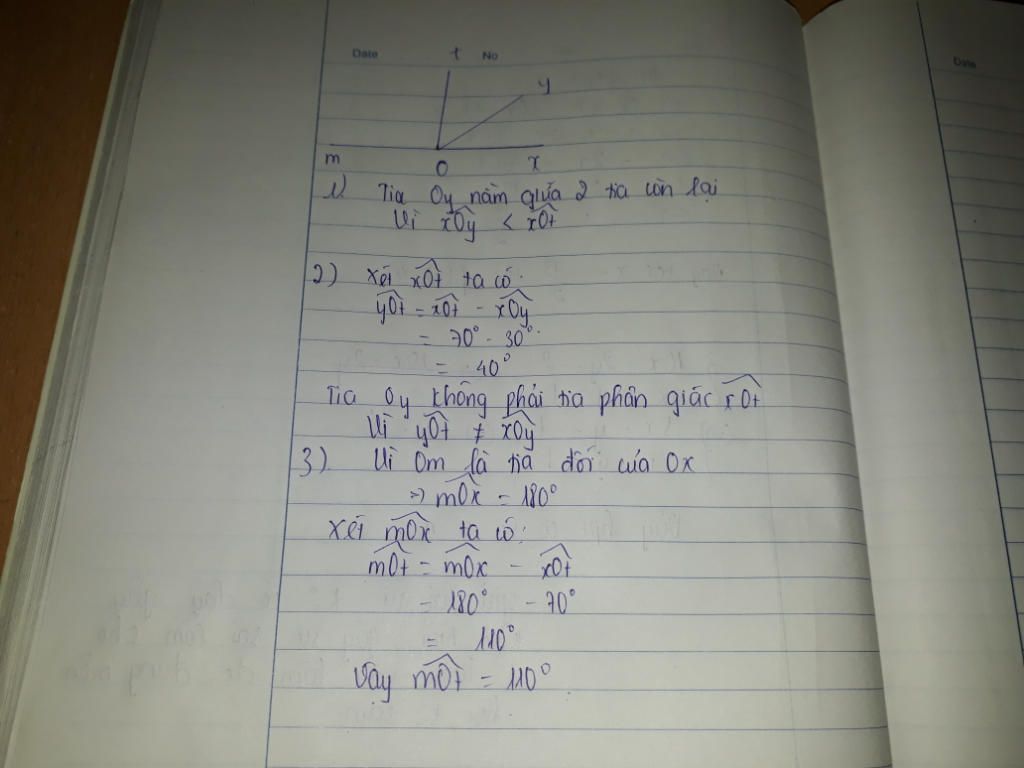 Date
t
No
Date
y
m
O
x
1) Tia Oy nằm giữa 2 tia còn lại
Vì xOy < xOt
2) Xét xOt ta có:
yOt = xOt - xOy
= 70° - 30°
= 40°
Tia Oy không phải tia phân giác xOt
Vì yOt ≠ xOy
3) Vì Om là tia đối của Ox
=> mOx = 180°
Xét mOx ta có:
mOt = mOx - xOt
= 180° - 70°
= 110°
Vậy mOt = 110°